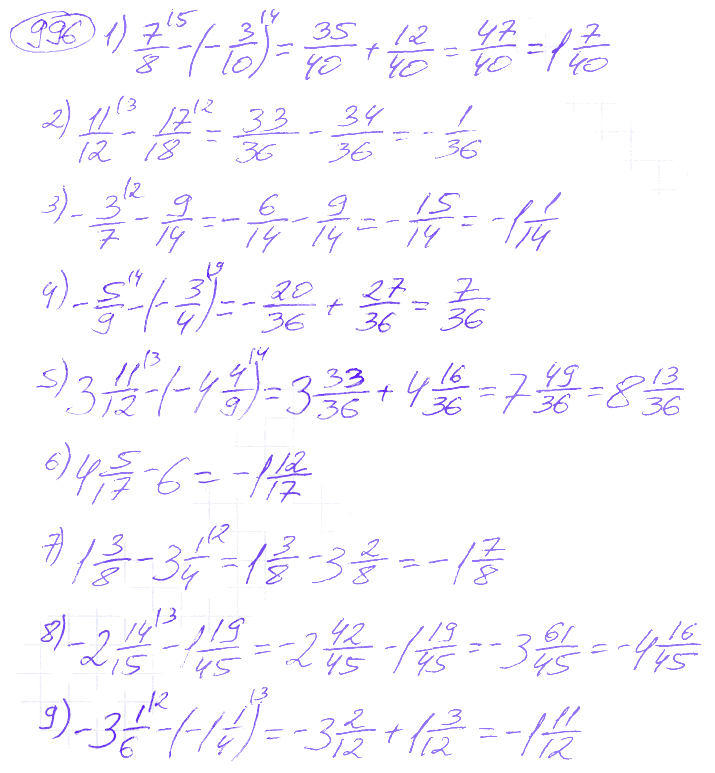 996 1) 7/8 |5 - (- 3/10) |4 = 35/40 + 12/40 = 47/40 = 1 7/40
2) 11/12 |3 - 17/18 |2 = 33/36 - 34/36 = - 1/36
3) - 3/7 |2 - 9/14 = - 6/14 - 9/14 = - 15/14 = -1 1/14
4) - 5/9 |4 - (- 3/4) |9 = - 20/36 + 27/36 = 7/36
5) 3 11/12 |3 - (-4 4/9) |4 = 3 33/36 + 4 16/36 = 7 49/36 = 8 13/36
6) 4 5/17 - 6 = -1 12/17
7) 1 3/8 - 3 1/4 |2 = 1 3/8 - 3 2/8 = -1 7/8
8) -2 14/15 |3 - 1 19/45 = -2 42/45 - 1 19/45 = -3 61/45 = -4 16/45
9) -3 1/6 |2 - (-1 1/4) |3 = -3 2/12 + 1 3/12 = -1 11/12